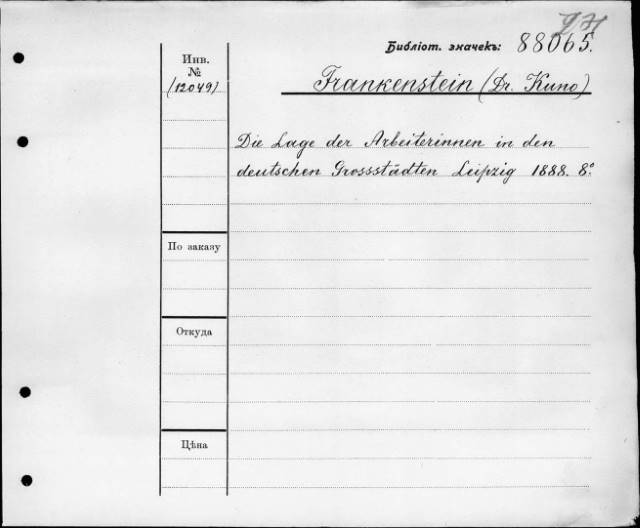 Библіот. значекъ: 88065.
Инв.
№
(12049)
Frankenstein (Dr. Kuno)
Die Lage der Arbeiterinnen in den
deutschen Grossstädten Leipzig 1888. 8º
По заказу
Откуда
Цѣна